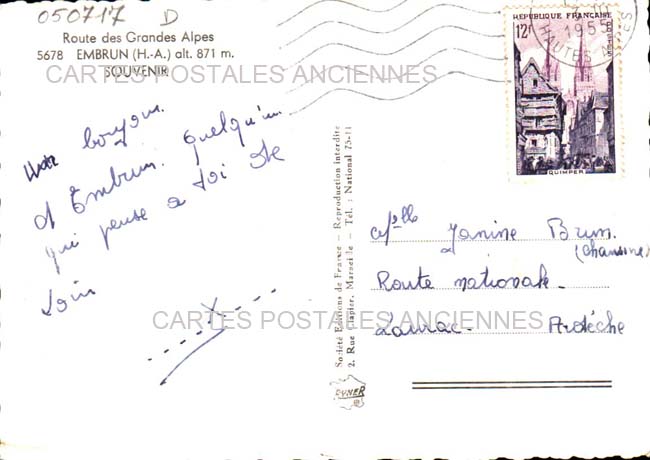 050717 D
Route des Grandes Alpes
5678 EMBRUN (H.-A.) alt. 871 m.
SOUVENIR
CARTES POSTALES ANCIENNES
bonjour
d'Embrun. Quelqu'un
qui pense a toi de
Loin
Société Editions de France — Reproduction interdite
2, Rue Clapier, Marseille — Tél. : National 75-11
DYNER
REPUBLIQUE FRANÇAISE
12F
POSTES
QUIMPER
1955
HAUTES ALPES
Mlle Janine Brun.
(Chausson
Route nationale.
Lavrac. Ardèche
CARTES POSTALES ANCIENNES